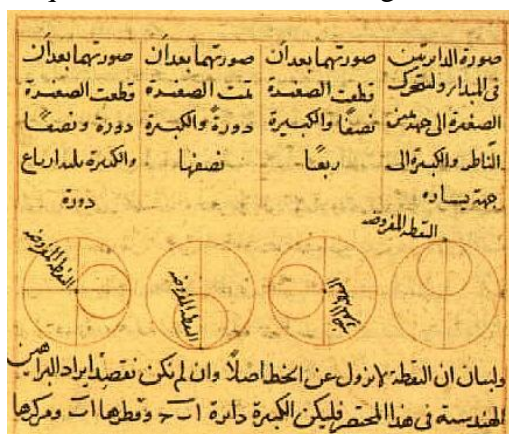 صورة الدايرتين
في المبدا ولتتحرك
الصغيرة الى جهة يمين
الناظر والكبيرة الى
جهة يساره
صورتهما بعد ان
قطعت الصغيرة
نصفًا والكبيرة
ربعًا
صورتهما بعد ان
تمت الصغيرة
دورةً والكبيرة
نصفها
صورتهما بعد ان
قطعت الصغيرة
دورة ونصفًا
والكبيرة ثلثة ارباع
دورة
النقطة المفروضة
النقطة المفروضة
النقطة المفروضة
ولبيان ان النقطة لا تزول عن الخط اصلًا وان لم نكن نقصد ايراد البراهين
الهندسية في هذا المختصر فليكن الكبيرة دائرة اب وقطرها اب ومركزها